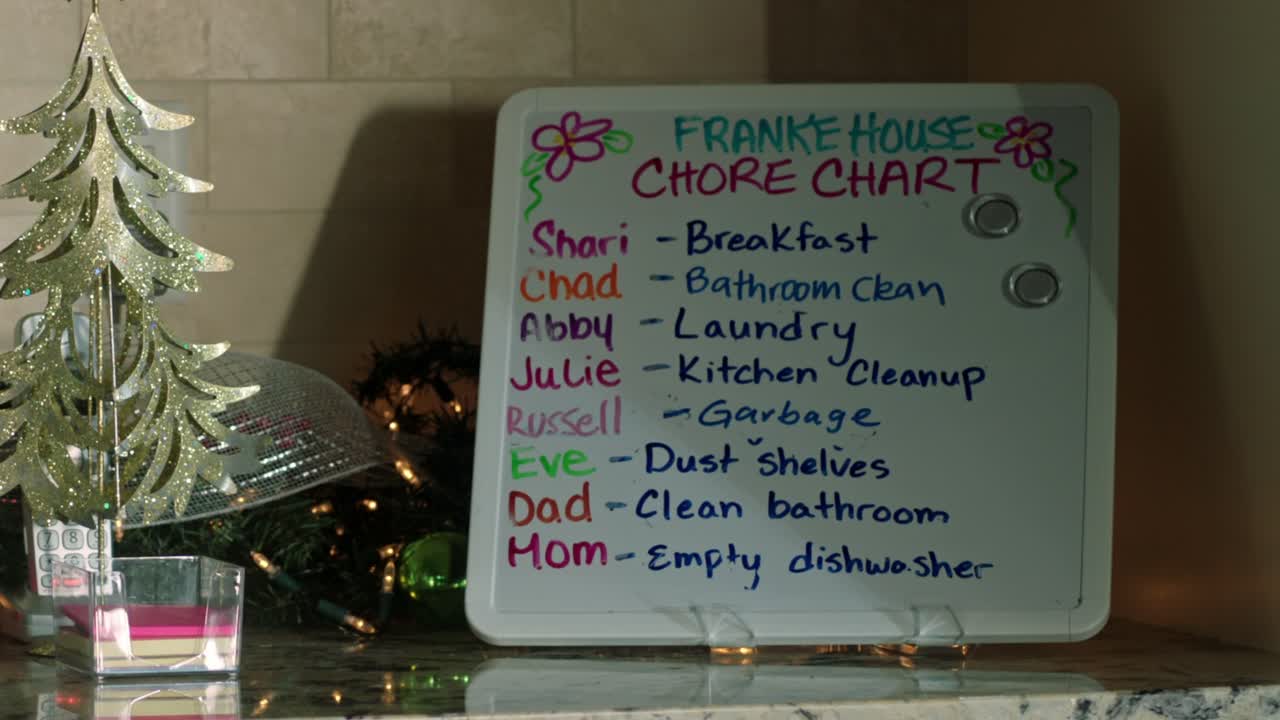 FRANKE HOUSE
CHORE CHART
Shari - Breakfast
Chad - Bathroom Clean
Abby - Laundry
Julie - Kitchen Cleanup
Russell - Garbage
Eve - Dust shelves
Dad - Clean bathroom
Mom - Empty dishwasher
7 8 9